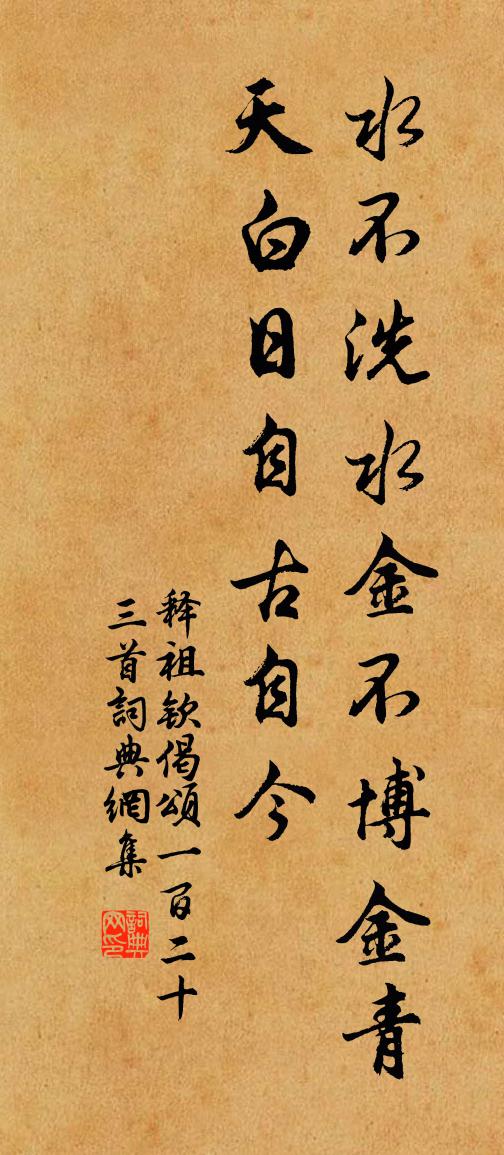 水不洗水金不博金青
天白日自古自今
释祖钦偈頌一百二十
三首詞典網集
詞典网印